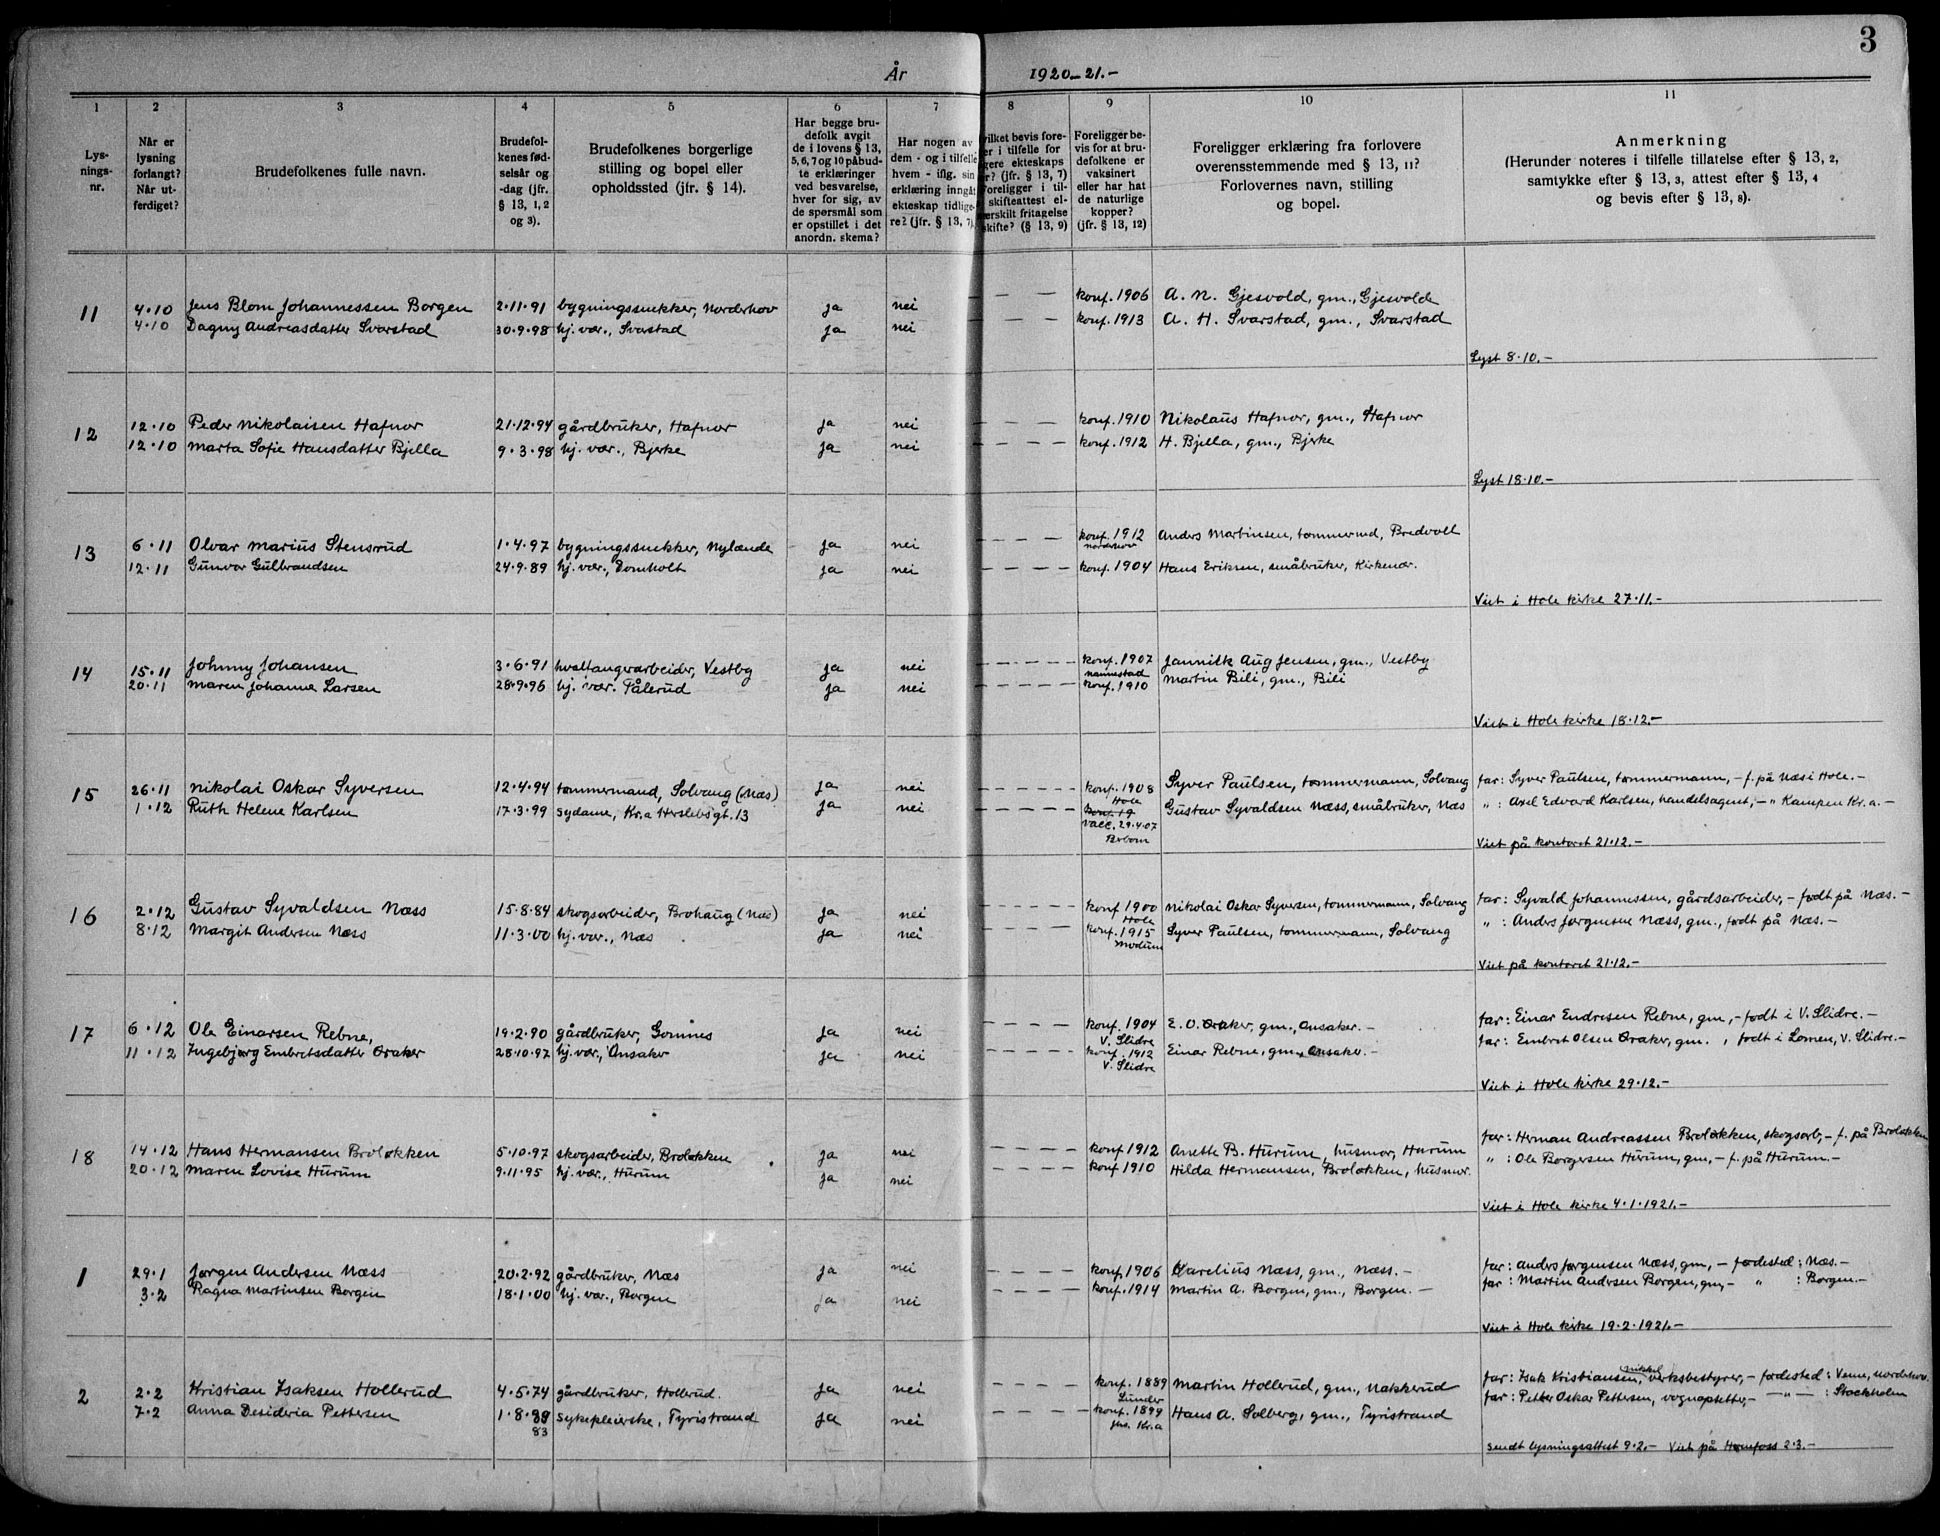 3
År 1920-21.-
1 2 3 4 5 6 7 8 9 10 11
Lys-
nings-
nr.
Når er
lysning
forlangt?
Når ut-
ferdiget?
Brudefolkenes fulle navn.
Brudefol-
kenes fød-
selsår og
-dag (jfr.
§ 13, 1, 2
og 3).
Brudefolkenes borgerlige
stilling og bopel eller
opholdssted (jfr. § 14).
Har begge bru-
defolk avgit
de i lovens § 13,
5, 6, 7 og 10 påbud-
te erklæringer
ved besvarelse,
hver for sig, av
de spørsmål som
er opstillet i det
anordn. skema?
Har nogen av
dem - og i tilfelle
hvem - iflg. sin
erklæring inngåt
ekteskap tidlige-
re? (jfr. § 13, 7).
vilket bevis fore-
er i tilfelle for
gere ekteskaps
r? (jfr. § 13, 7)
Foreligger i til-
skifteattest el-
ærskilt fritagelse
skifte? (§ 13, 9)
Foreligger be-
vis for at bru-
defolkene er
vaksinert
eller har hat
de naturlige
kopper?
(jfr. § 13, 12)
Foreligger erklæring fra forlovere
overensstemmende med § 13, 11?
Forlovernes navn, stilling
og bopel.
Anmerkning
(Herunder noteres i tilfelle tillatelse efter § 13, 2,
samtykke efter § 13, 3, attest efter § 13, 4
og bevis efter § 13, 8).
11 4.10 Jens Blom Johannessen Borgen 2.11.91 bygningssnekker, Norderhov ja nei - - konf. 1906 A. N. Gjesvold, gm., Gjesvold
4.10 Dagny Andreasdatter Svarstad 30.9.98 hj. vær., Svarstad ja nei - - - konf. 1913 A. H. Svarstad, gm., Svarstad
Lyst 8.10.-
12 12.10 Peder Nikolaisen Hafnor 21.12.94 gårdbruker, Hafnor ja nei - - - konf. 1910 Nikolaus Hafnor, gm., Hafnor
12.10 Marta Sofie Hansdatter Bjella 9.3.98 hj. vær., Bjerke ja nei - - - - konf. 1912 H. Bjella, gm., Bjerke
Lyst 18.10.-
13 6.11 Olvar Marius Stensrud 1.4.97 bygningssnekker, Nylænde ja nei - - - konf. 1912 Anders Martinsen, tømmermd, Bredvolt
Norderhov
12.11 Gunvor Gulbrandsen 24.9.89 hj. vær., Domholt ja nei - - - - konf. 1904 Hans Eriksen, småbruker, Kirkenær.
Viet i Hole kirke 27.11.-
14 15.11 Johnny Johansen 3.6.91 hvalfangerarbeider, Vestby ja nei - - - - konf. 1907 Jannitk Aug Jensen, gm., Vestby
Nannestad
20.11 Maren Johanne Larsen 28.9.96 hj. vær. Fålerud ja nei - - - - konf. 1910 Martin Bili, gm., Bili
Viet i Hole kirke 18.12.-
15 26.11 Nikolai Oskar Syversen 12.4.94 tømmermand, Solvang (Næs) ja nei - - - - konf. 1908 Syver Paulsen, tømmermann, Solvang far: Syver Paulsen, tømmermann, - f. på Næs i Hole.-
Hole
1.12 Ruth Helene Karlsen 17.3.99 sydame, Kr.a Herslebsgt. 13 ja nei - - - - konf. 19 Gustav Syvaldsen Næss, småbruker, Næs " : Axel Edvard Karlsen, handelsagent, - " Kampen Kr.a. -
vacc. 29.4.07
Viet på kontoret 21.12.-
16 2.12 Gustav Syvaldsen Næss 15.8.84 skogsarbeider, Brohaug (Næs) ja nei - - - - konf 1900 Nikolai Oskar Syversen, tømmermann, Solvang far: Syvald Johannessen, gårdsarbeider, - født på Næs. -
Hole
8.12 Margit Andersen Næss 11.3.00 hj. vær., Næs ja nei - - - - konf. 1915 Syver Paulsen, tømmermann, Solvang " : Anders Jørgensen Næss, gm., født på Næs. -
Modum
Viet på kontoret 21.12.-
17 6.12 Ole Einarsen Rebne, 19.2.90 gårdbruker, Gomnes ja nei - - - - konf. 1904 E. O. Øraker, gm., Onsaker. - far: Einar Endresen Rebne, gm, - født i V. Slidre. -
V. Slidre
11.12 Ingebjørg Embretsdatter Øraker 28.10.97 hj. vær., Onsaker ja nei - - - - konf. 1912 Einar Rebne, gm., Onsaker. - far: Embret Olsen Øraker, gm. , født i Lomen, V. Slidre.-
V. Slidre
Viet i Hole kirke 29.12.-
18 14.12 Hans Hermansen Broløkken 5.10.97 skogsarbeider, Broløkken ja nei - - - - konf. 1912 Anette B. Hurum, husmor, Hurum far: Herman Andreassen Broløkken, skogsarb, - f. på Broløkken
20.12 Maren Lovise Hurum 9.11.95 hj. vær., Hurum ja nei - - - - konf. 1910 Hilda Hermansen, Broløkken, husmor. " : Ole Borgersen Hurum, gm, - f. på Hurum. -
Viet i Hole kirke 4.1.1921.-
1 29.1 Jørgen Andersen Næss 20.2.92 gårdbruker, Næs ja nei - - - - konf. 1906 Karelius Næss, gm., Næss. - far: Anders Jørgensen Næss, gm, - fødested : Næs. -
3.2 Ragna Martinsen Borgen 18.1.00 hj. vær., Borgen ja nei - - - - konf. 1914 Martin A. Borgen, gm., Borgen. - far: Martin Andrsen Borgen, gm, - " : Borgen. -
Viet i Hole kirke 19.2.1921.-
2 2.2 Kristian Isaksen Hollerud 4.5.74 gårdbruker, Hollerud. ja nei - - - - konf. 1889 Martin Hollerud, gm, Nakkerud far: Isak Kristiansen, nikkel verksbestyrer, - fødested : Veme, Norderhov.
Lunder
7.2 Anna Desideria Pettersen 1.8.99 sykepleierske, Tyristrand ja nei - - - - konf. 1899 Hans A. Solberg, gm., Tyristrand far: Petter Oskar Pettersen, vognopsetter, - - " - : Stockholm
83 Jns. Kr.a
sendt lysningsattest 9.2.- Viet på Hønefoss 2.3.-